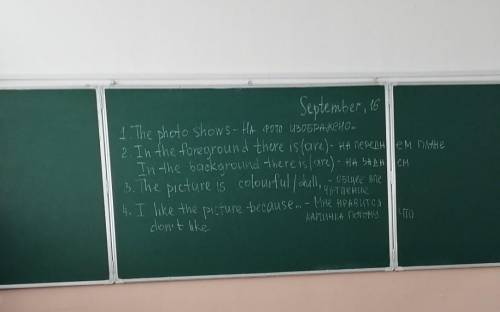 September, 16
1. The photo shows - НА ФОТО ИЗОБРАЖЕНО..
2. In the foreground there is (are) - НА ПЕРЕДНЕМ ПЛАНЕ
In the background there is (are) - НА ЗАДНЕМ
3. The picture is colourful/dull, - ОБЩЕЕ ВПЕ
ЧАТЛЕНИЕ
4. I like the picture because... - МНЕ НРАВИТСЯ
don't like КАРТИНКА ПОТОМУ ЧТО